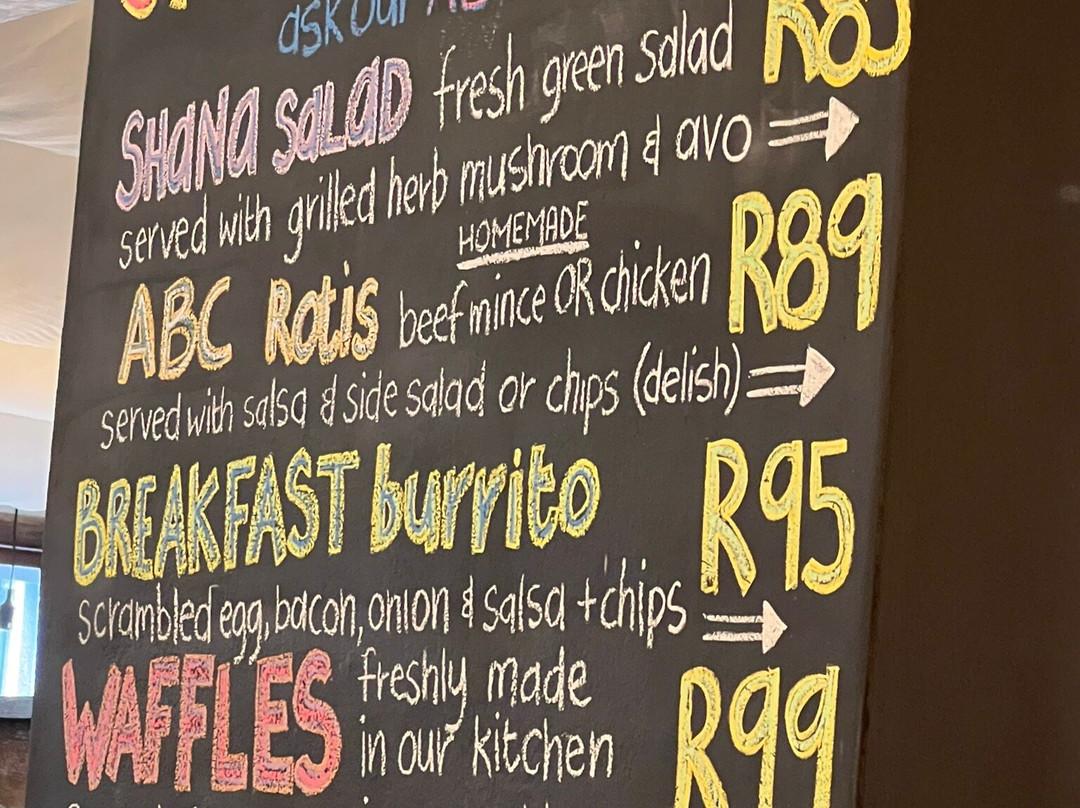 ask our
SHaNa SaLaD fresh green salad R85
served with grilled herb mushroom & avo
HOMEMADE
ABC Rotis beef mince OR chicken R89
served with salsa & side salad or chips (delish)
BREAKFAST burrito R95
scrambled egg, bacon, onion & salsa + chips
WAFFLES freshly made
in our kitchen R99